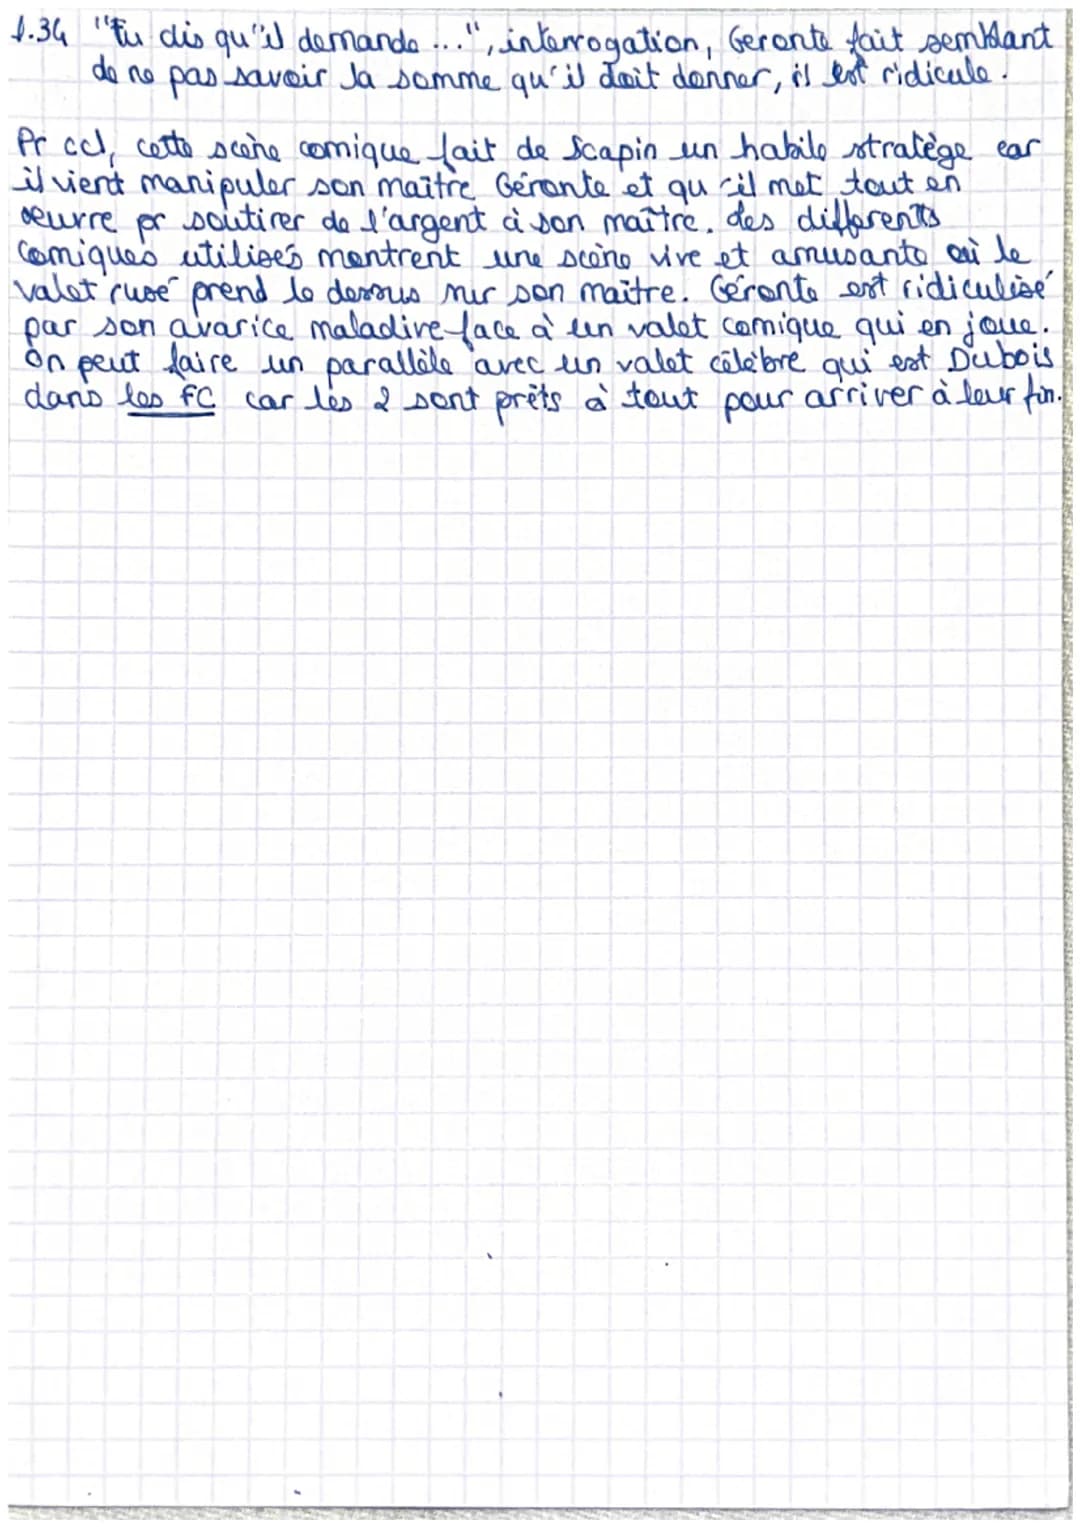 l.34 "Tu dis qu'il demande ...", interrogation, Geronte fait semblant
de ne pas savoir la somme qu'il doit donner, il est ridicule.
Pr ccl, cette scène comique fait de Scapin un habile stratège car
il vient manipuler son maître Géronte et qu'il met tout en
oeuvre pr soutirer de l'argent à son maître. des différents
comiques utilisés montrent une scène vive et amusante où le
valet rusé prend le dessus sur son maître. Géronte est ridiculisé
par son avarice maladive face à un valet comique qui en joue.
On peut faire un parallèle avec un valet célèbre qui est Dubois
dans les FC car les 2 sont prêts à tout pour arriver à leur fin.